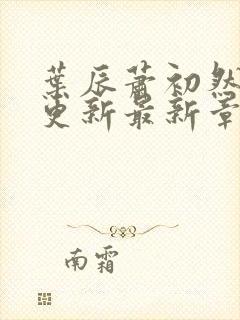 葉辰蕭初然
更新最新章
南霜